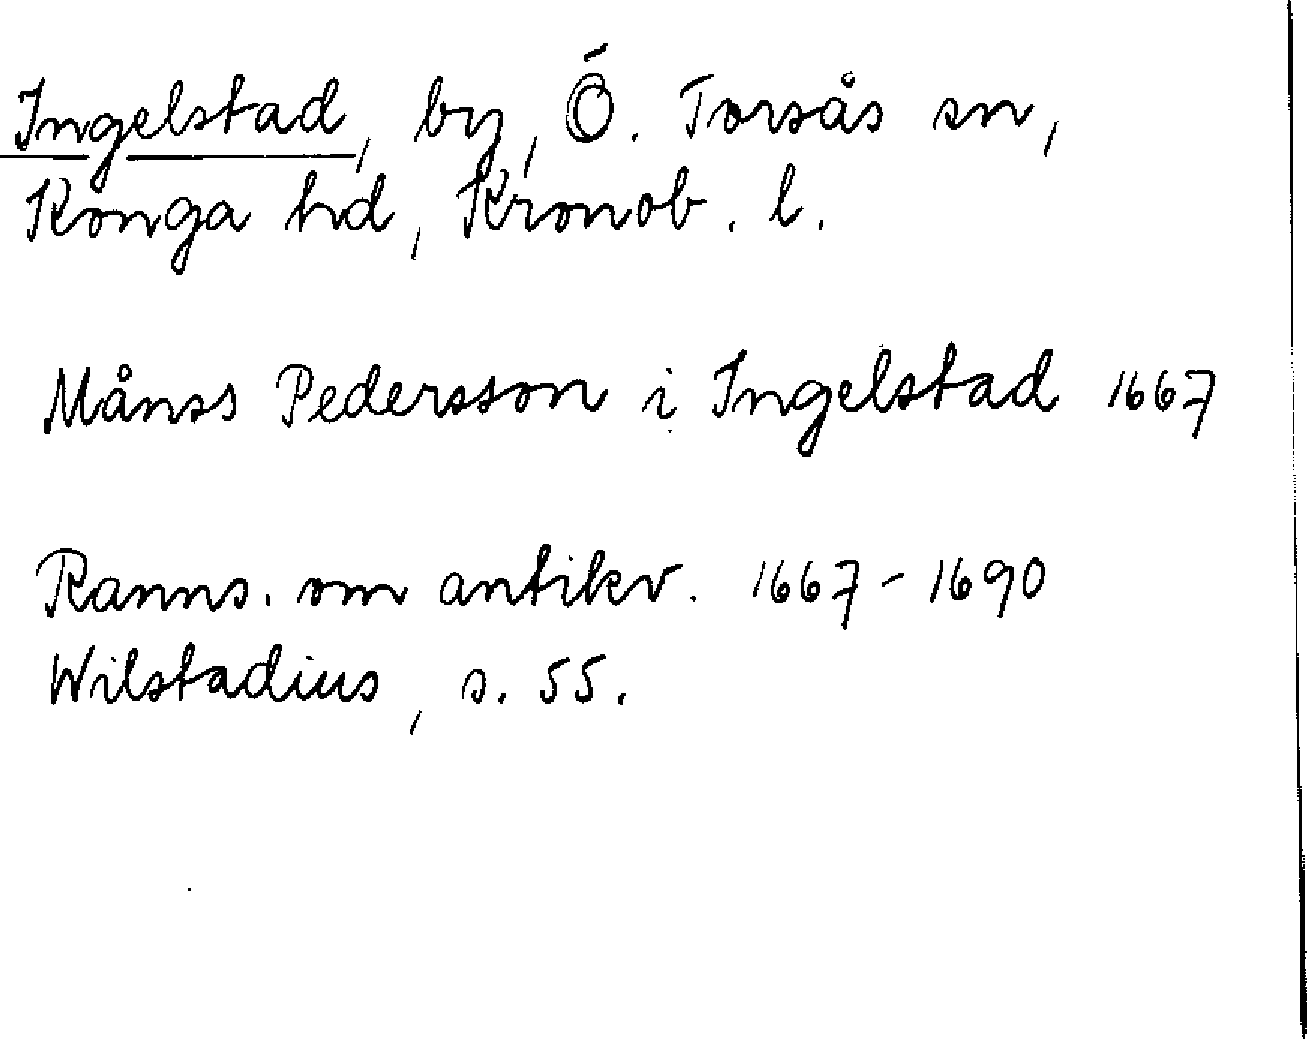 Ingelstad, by, Ö. Torsås sn,
Konga hd, Kronob. l.
Månss Pedersson i Ingelstad 1667
Ranns. om antikv. 1667-1690
Wilstadius, s. 55.